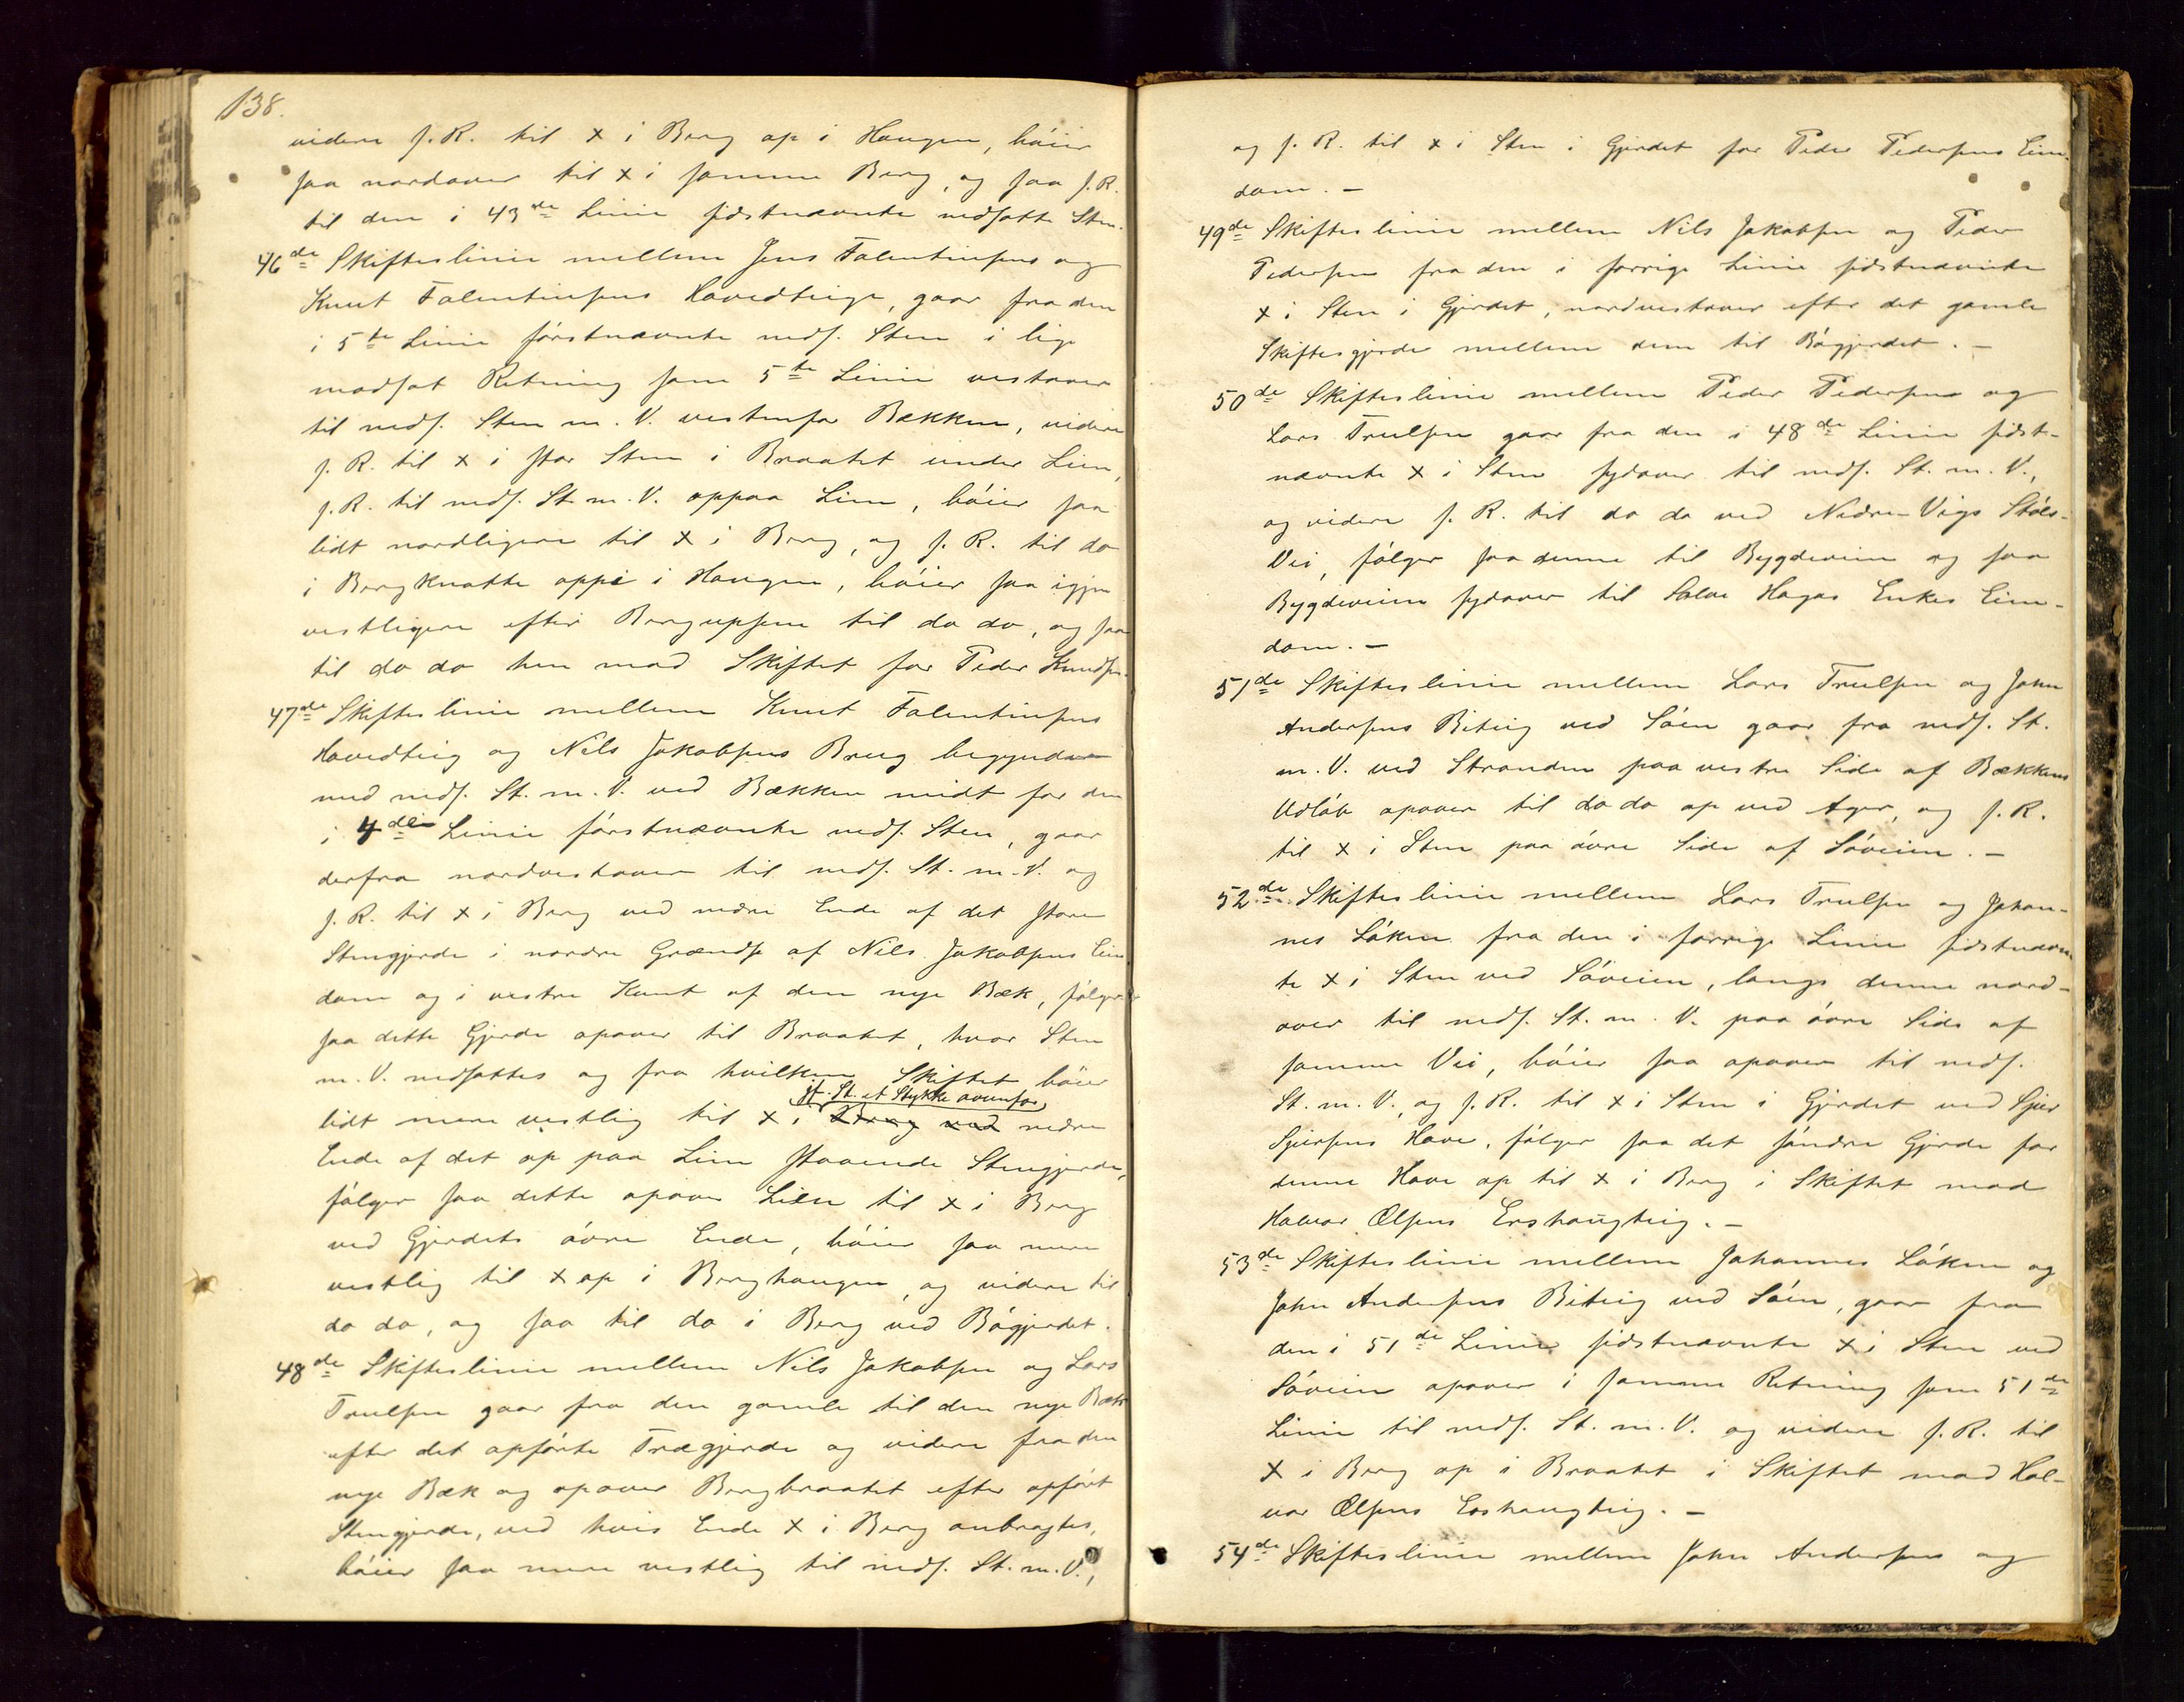 138.
videre s. R. til x i Berg op i Haugen, bøier
saa nordover til x i samme Berg, og saa s. R.
til den i 43de Linie sidstnævnte nedsatte Sten.
46de Skifteslinie mellem Jens Falentinsens og
Knut Falentinsens Hovedteige, gaar fra den
i 5te Linie førstnævnte neds. Sten i lige
modsat Retning som 5te Linie vestover
til neds. Sten m. V. vestenfor Bækken, videre
s. R. til x i stor Sten i Braatet under Lien,
s. R. til neds. St. m. V. oppaa Lien, bøier saa
lidt nordligere til x i Berg, og s. R. til do
i Bergknatte oppe i Haugen, bøier saa igjen
vestligere efter Bergupsen til do do, og saa
til do do hen mod Skiftet for Peder Knudsen.
47de Skifteslinie mellem Knut Falentinsens
Hovedteig og Nils Jakobsens Brug begynder
med neds. St. m. V. ved Bækken midt for den
i 4de Linie førstnævnte neds. Sten, gaar
derfra nordvestover til neds. St. m. V. og
s. R. til x i Berg ved nedre Ende af det store
Stengjerde i nordre Grændse af Nils Jakobsens Eien
dom og i vestre Kant af den nye Bæk, følger
saa dette Gjerde opover til Braatet, hvor Sten
m. V. nedsattes og fra hvilken Skiftet bøier
jf. St. et Stykke ovenfor
lidt mere vestlig til x i Berg ved nedre
Ende af det op paa Lien staaende Stengjerde,
følger saa dette opover Lien til x i Berg
ved Gjerdets øvre Ende, bøier saa mere
vestlig til x op i Berghaugen, og videre til
do do, og saa til do i Berg ved Bøgjerdet.
48de Skifteslinie mellem Nils Jakobsen og Lars
Trulsen gaar fra den gamle til den nye Bæk
efter det opførte Trægjerde og videre fra den
nye Bæk og opover Bergbraatet efter opført
Stengjerde, ved hvis Ende x i Berg anbragtes,
bøier saa mere vestlig til neds. St. m. V.,
og s. R. til x i Sten i Gjerdet for Peder Pedersens Eien-
dom. –
49de Skifteslinie mellem Nils Jakobsen og Peder
Pedersen fra den i forrige Linie sidstnævnte
x i Sten i Gjerdet, nordvestover efter det gamle
Skiftesgjerde mellem dem til Bøgjerdet. –
50de Skifteslinie mellem Peder Pedersens og
Lars Trulsen gaar fra den i 48de Linie sidst-
nævnte x i Sten sydover til neds. St. m. V.,
og videre s. R. til do do ved Nedre-Vigs Støls-
Vei, følger saa denne til Bygdeveien og saa
Bygdeveien sydover til Salve Hagas Enkes Eien-
dom. –
51de Skifteslinie mellem Lars Trulsen og John
Andersens Biteig ved Søen gaar fra neds. St.
m. V. ved Stranden paa vestre Side af Bækkens
Udløb opover til do do op ved Ager, og s. R.
til x i Sten paa øvre Side af Søveien. –
52de Skifteslinie mellem Lars Trulsen og Johan-
nes Løken fra den i forrige Linie sidstnævn-
te x i Sten ved Søveien, langs denne nord-
over til neds. St. m. V. paa øvre Side af
samme Vei, bøier saa opover til neds.
St. m. V., og s. R. til x i Sten i Gjerdet ved Sjur
Sjursens Have, følger saa det søndre Gjerde for
denne Have op til x i Berg i Skiftet mod
Halvor Olsens Ershaugteig. –
53de Skifteslinie mellem Johannes Løken og
John Andersens Biteig ved Søen, gaar fra
den i 51de Linie sidstnævnte x i Sten ved
Søveien opover i samme Retning som 51de
Linie til neds. St. m. V. og videre s. R. til
x i Berg op i Braatet i Skiftet mod Hal-
vor Olsens Ershaugteig. –
54de Skifteslinie mellem John Andersens og